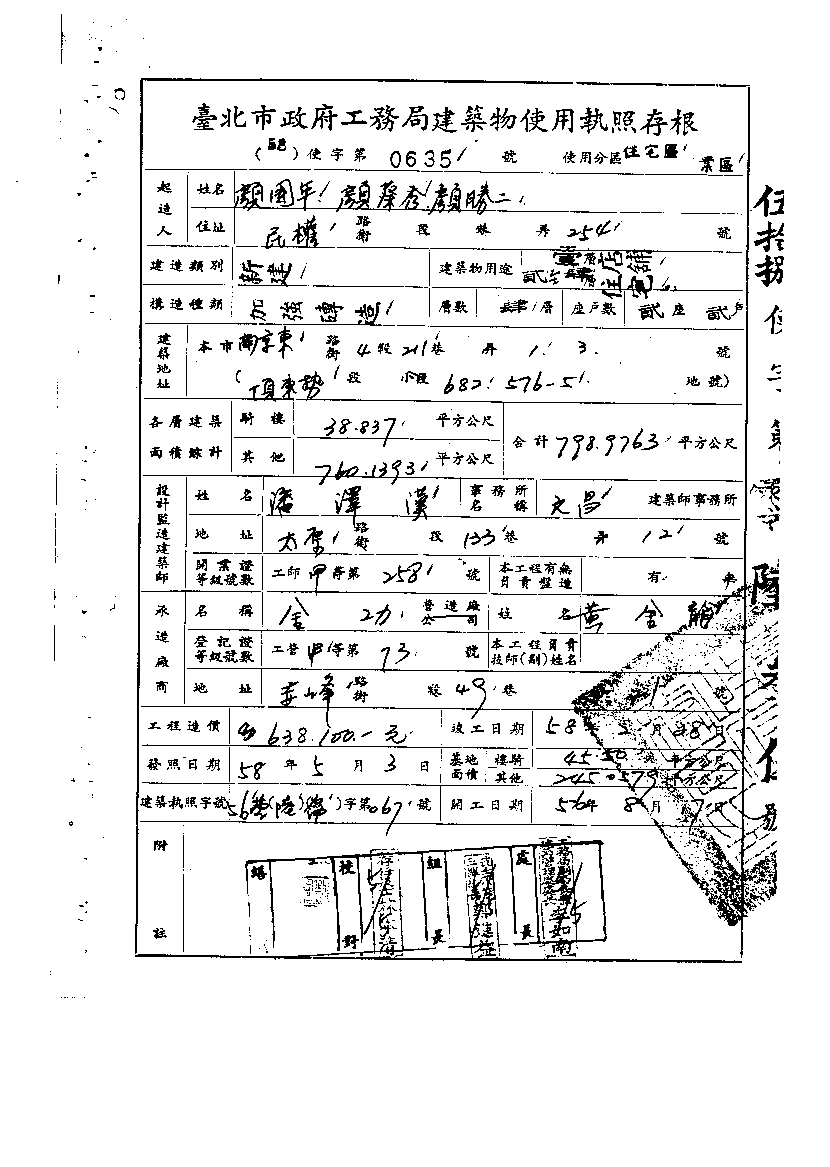 臺北市政府工務局建築物使用執照存根
(58) 使字第 0635 號 使用分區 住宅區 業區
起造人 姓名 顏國年 顏蔡秀 顏勝二
住址 民權 路街 段 巷 弄 254 號
建造類別 新建 建築物用途 壹層店舖 貳至肆層住宅
構造種類 加強磚造 層數 肆層 座戶數 貳座 貳戶
建築地址 本市 南京東 路街 4 段 211 巷 弄 1. 3. 號
(頂東勢 段 小段 682. 576-5 地號)
各層建築面積總計 騎樓 38.837 平方公尺 合計 798.9763 平方公尺
其他 760.1393 平方公尺
設計監造建築師 姓名 潘澤漢 事務所名稱 文昌 建築師事務所
地址 太原 路街 段 133 巷 弄 12 號
開業證等級號數 工師 甲 等第 258 號 本工程有無負責監造 有 無
承造廠商 名稱 金功 營造廠公司 姓名 黃金
登記證等級號數 工營 甲 等第 73 號 本工程負責技師(副)姓名
地址 路街 段 49 巷 號
工程造價 638.100.-元 竣工日期 58 年 月 日
發照日期 58 年 5 月 3 日 基地面積 騎樓 45.50 平方公尺
其他 平方公尺
建築執照字號 56 字第 067 號 開工日期 56 年 8 月 7 日
附註
組長 處長
伍拾捌 使字第